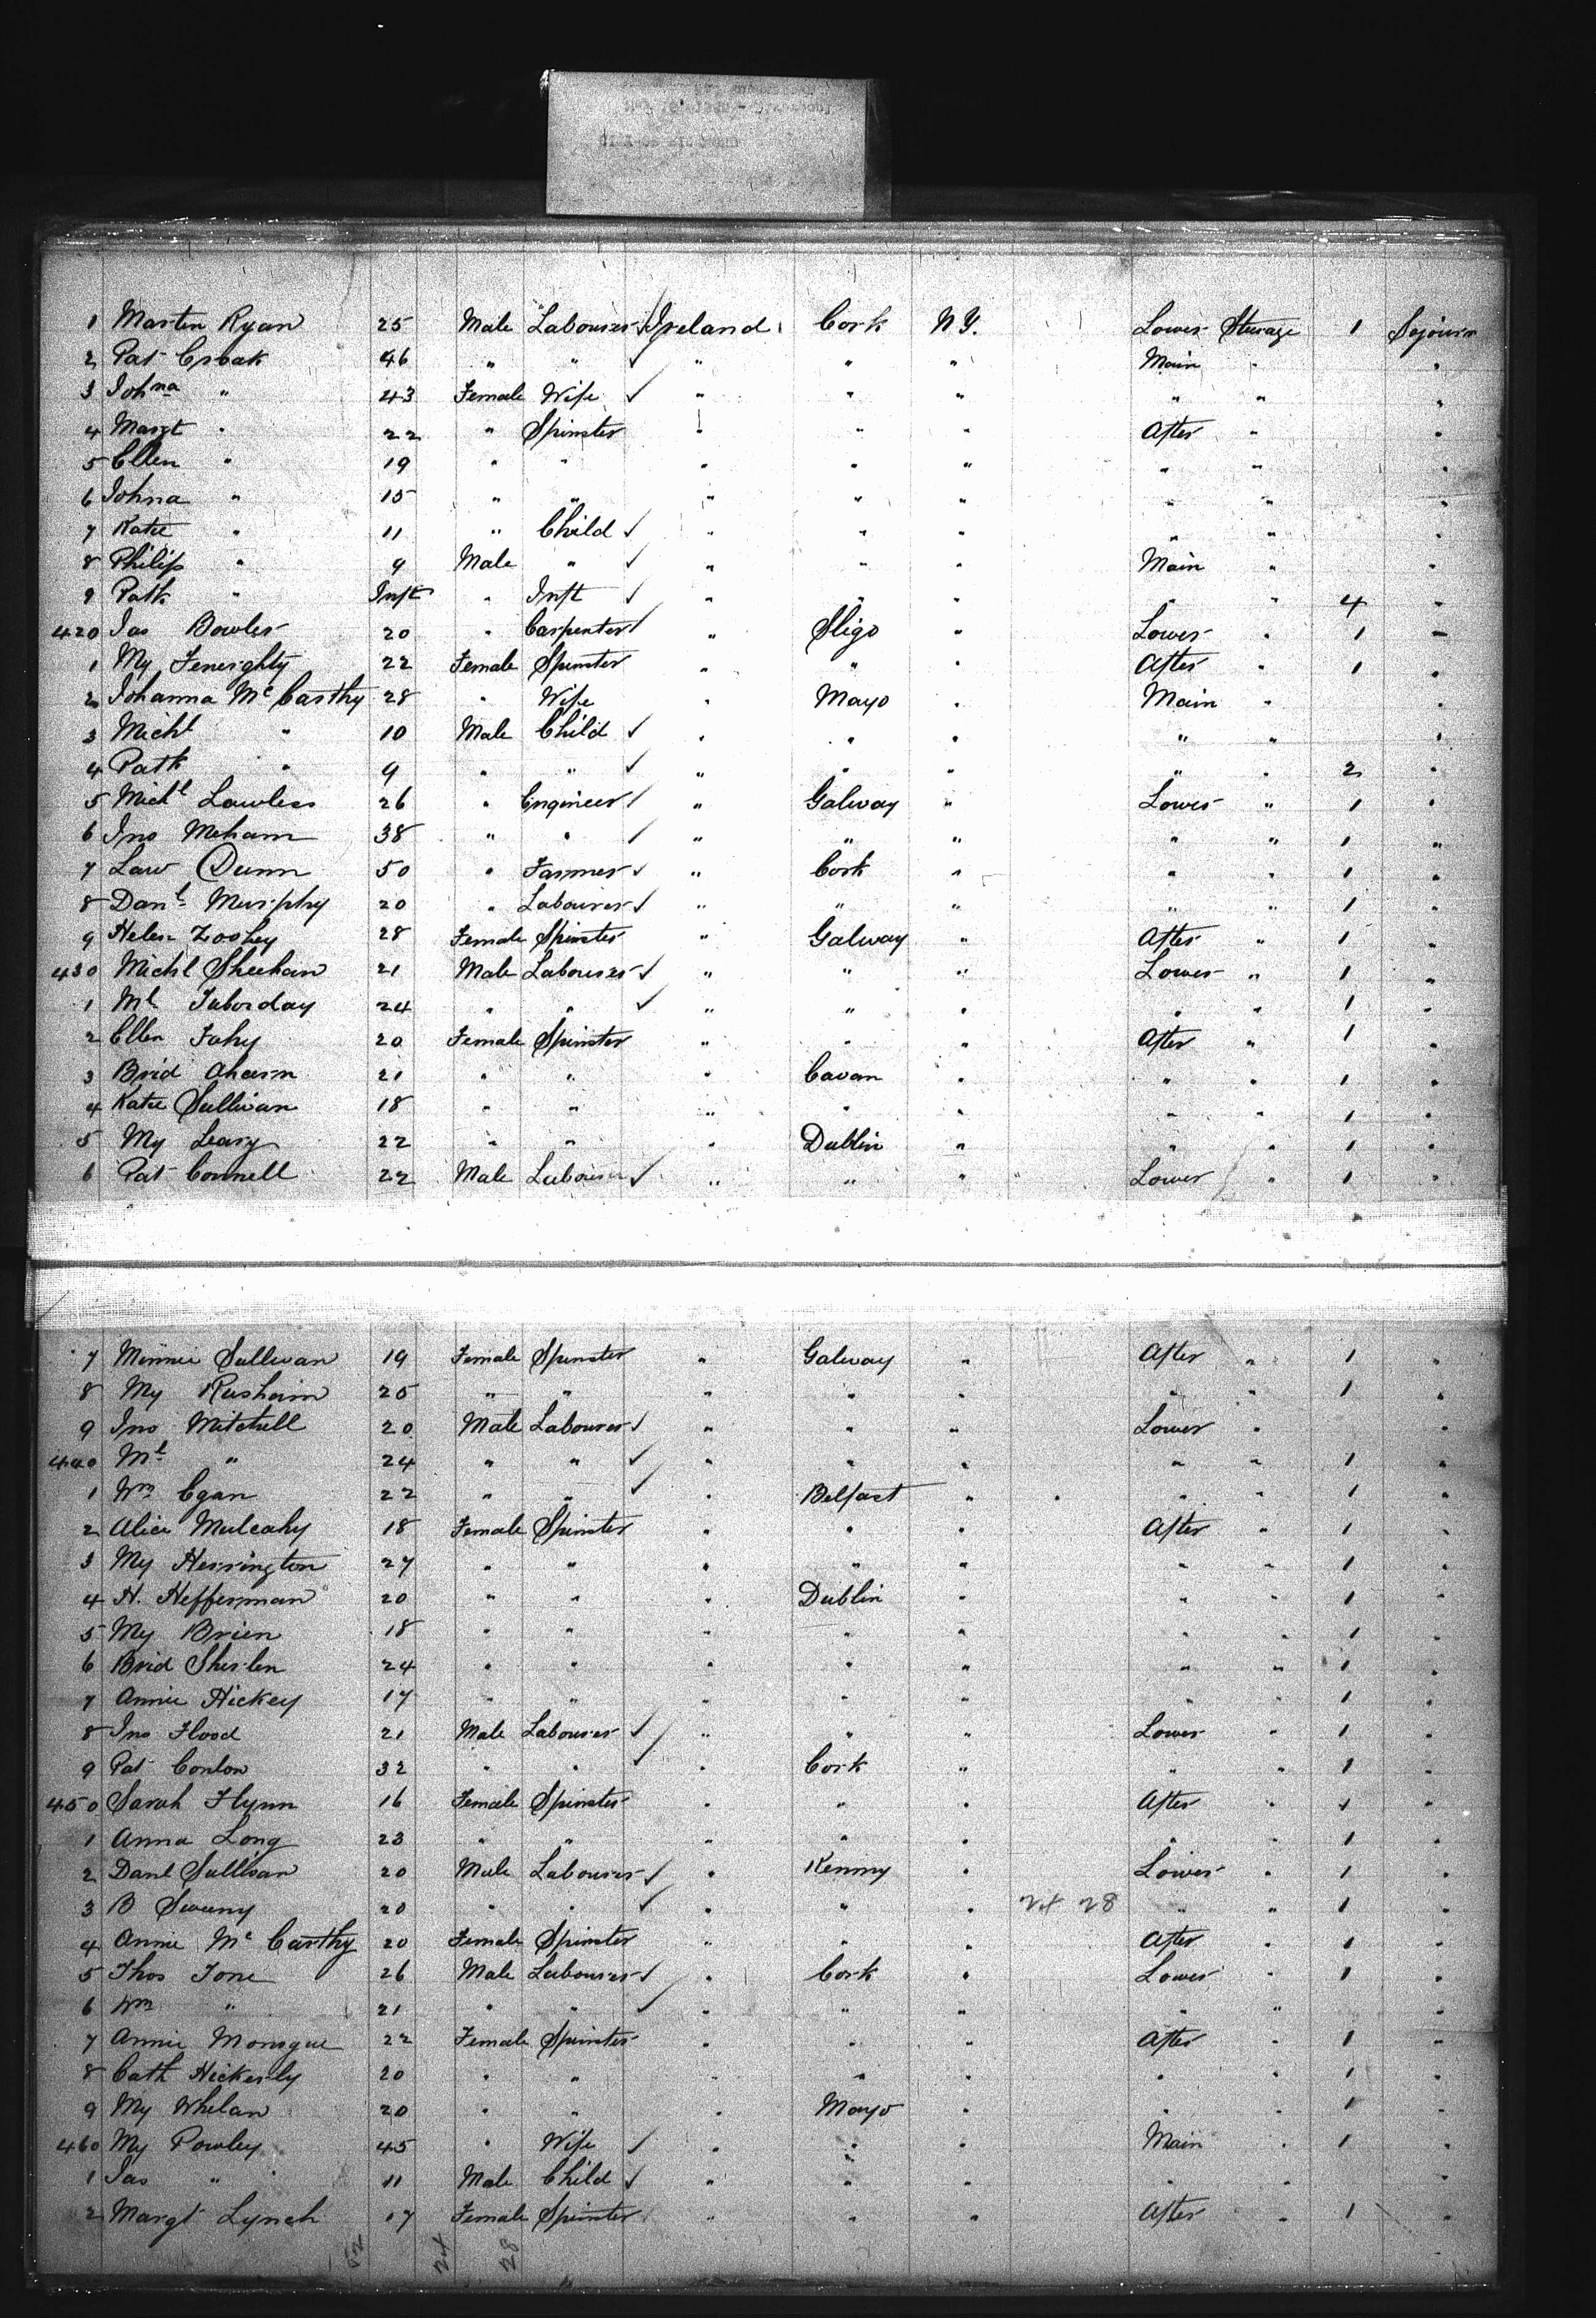 1 Martin Ryan 25 Male Labourer Ireland Cork N.Y. Lower Sterage 1 Sojourn
2 Pat Croak 46 " " " " " Main " "
3 Johna " 43 Female Wife " " " " " "
4 Margt " 22 " Spinster " " " After " "
5 Ellen " 19 " " " " " " " "
6 Johna " 15 " " " " " " " "
7 Katie " 11 " Child " " " " " "
8 Philip " 9 Male " " " " Main " "
9 Patk " Inft " Inft " " " " " 4 "
420 Jas Bowler 20 " Carpenter " Sligo " Lower " 1 "
1 My Fenerghty 22 Female Spinster " " " After " 1 "
2 Johanna Mc Carthy 28 " Wife " Mayo " Main " "
3 Michl " 10 Male Child " " " " " "
4 Patk " 9 " " " " " " " 2 "
5 Michl Lawless 26 " Engineer " Galway " Lower " 1 "
6 Jno Meham 38 " " " " " " " 1 "
7 Law Dunn 50 " Farmer " Cork " " " 1 "
8 Danl Murphy 20 " Labourer " " " " " 1 "
9 Helen 28 Female Spinster " Galway " After " 1 "
430 Michl Sheehan 21 Male Labourer " " " Lower " 1 "
1 Ml 24 " " " " " " " 1 "
2 Ellen Fahy 20 Female Spinster " " " After " 1 "
3 Brid Ahearn 21 " " " Cavan " " " 1 "
4 Katie Sullivan 18 " " " " " " " 1 "
5 My Leary 22 " " " Dublin " " " 1 "
6 Pat Connell 22 Male Labourer " " " Lower " 1 "
7 Minnie Sullivan 19 Female Spinster " Galway " After " 1 "
8 My Rushaim 25 " " " " " " " 1 "
9 Jno Mitchell 20 Male Labourer " " " Lower " "
440 Ml " 24 " " " " " " " 1 "
1 Wm Egan 22 " " " Belfast " " " 1 "
2 Alice Mulcahy 18 Female Spinster " " " After " 1 "
3 My Herrington 27 " " " " " " " 1 "
4 H. Hefferman 20 " " " Dublin " " " 1 "
5 My Brien 18 " " " " " " " 1 "
6 Brid Sherlen 24 " " " " " " " 1 "
7 Annie Hickey 17 " " " " " " " 1 "
8 Jno Flood 21 Male Labourer " " " Lower " 1 "
9 Pat Conlon 32 " " " Cork " " " 1 "
450 Sarah Flynn 16 Female Spinster " " " After " 1 "
1 Anna Long 23 " " " " " " " 1 "
2 Danl Sullivan 20 Male Labourer " Kenny " Lower " 1 "
3 B Sweeny 20 " " " " " 24 28 " " 1 "
4 Annie Mc Carthy 20 Female Spinster " " " After " 1 "
5 Thos Tone 26 Male Labourer " Cork " Lower " 1 "
6 Wm " 21 " " " " " " " "
7 Annie Monague 22 Female Spinster " " " After " 1 "
8 Cath Hickerly 20 " " " " " " " 1 "
9 My Whelan 20 " " " Mayo " " " 1 "
460 My Powley 45 " Wife " " " Main " 1 "
1 Jas " 11 Male Child " " " " " "
2 Margt Lynch 17 Female Spinster " " " After " 1 "
52 24 28